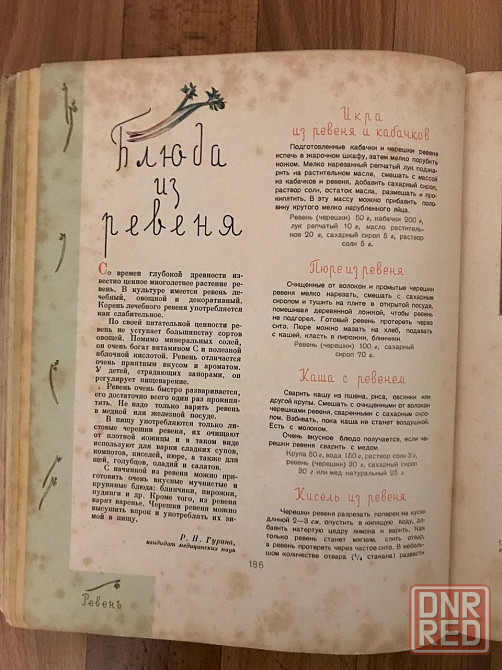 Блюда
из
ревеня
Со времен глубокой древности из-
вестно ценное многолетнее растение ре-
вень. В культуре имеется ревень ле-
чебный, овощной и декоративный.
Корень лечебного ревеня употребляется
как слабительное.
По своей питательной ценности ре-
вень не уступает большинству сортов
овощей. Помимо минеральных солей,
он очень богат витамином С и полезной
яблочной кислотой. Ревень отличается
очень приятным вкусом и ароматом.
У детей, страдающих запорами, он
регулирует пищеварение.
Ревень очень быстро разваривается,
его достаточно всего один раз прокипя-
тить. Не надо только варить ревень
в медной или железной посуде.
В пищу употребляются только ли-
стовые черешки ревеня, их очищают
от плотной кожицы и в таком виде
используют для варки сладких супов,
компотов, киселей, пюре, а также для
щей, голубцов, оладий и салатов.
С начинкой из ревеня можно при-
готовить очень вкусные мучнистые и
крупяные блюда: блинчики, пирожки,
пудинги и др. Кроме того, из ревеня
варят варенье. Черешки ревеня можно
высушить впрок и употреблять их зи-
мой в пищу.
Р. П. Гурина,
кандидат медицинских наук
Икра
из ревеня и кабачков
Подготовленные кабачки и черешки ревеня
испечь в жарочном шкафу, затем мелко порубить
ножом. Мелко нарезанный репчатый лук поджа-
рить на растительном масле, смешать с массой
из кабачков и ревеня, добавить сахарный сироп,
раствор соли, остаток масла, размешать и про-
кипятить. В эту массу можно прибавить поло-
вину крутого мелко нарубленного яйца.
Ревеня (черешки) 50 г, кабачки 200 г,
лук репчатый 10 г, масло раститель-
ное 20 г, сахарный сироп 5 г, раствор
соли 5 г.
Пюре из ревеня
Очищенные от волокон и промытые черешки
ревеня мелко нарезать, смешать с сахарным
сиропом и тушить на плите в открытой посуде,
помешивая деревянной ложкой, чтобы ревень
не подгорел. Готовый ревень протереть через
сито. Пюре можно мазать на хлеб, подавать
с кашей, класть в пирожки, блинчики.
Ревень (черешки) 100 г, сахарный
сироп 70 г.
Каша с ревенем
Сварить кашу из пшена, риса, овсянки или
другой крупы. Смешать с очищенными от волокон
черешками ревеня, сваренными с сахарным сиро-
пом. Взбивать, пока каша не станет воздушной.
Есть с молоком.
Очень вкусное блюдо получается, если че-
решки ревеня сварить с медом.
Крупа 50 г, вода 180 г, раствор соли 3 г,
ревень (черешки) 30 г, сахарный сироп
30 г или мед натуральный 25 г.
Кисель из ревеня
Черешки ревеня разрезать поперек на куски
длиной 2—3 см, опустить в кипящую воду, до-
бавить натертую цедру лимона и варить. Как
только ревень станет мягким, слить отвар,
а ревень протереть через частое сито. В неболь-
шом количестве отвара (¼ стакана) развести
186
Ревень
DNR
RED